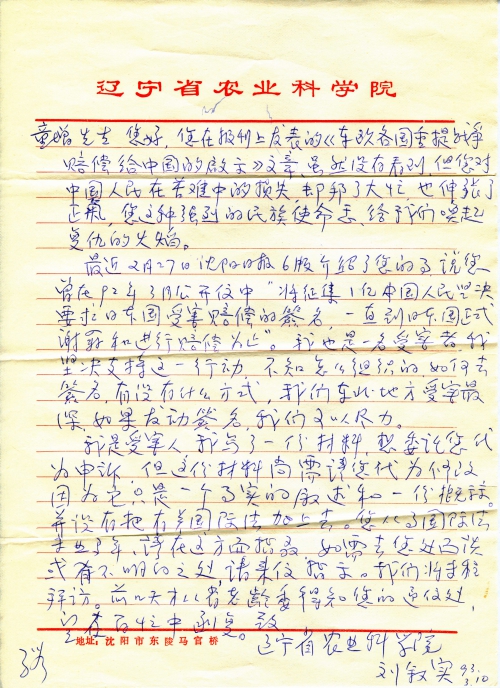 辽宁省农业科学院
童增先生 您好,您在报刊上发表的《东欧各国重提战争
赔偿给中国的启示》文章,虽然没有看到,但您对
中国人民在苦难中的损失,却帮了大忙,也伸张了
正气,您这种强烈的民族使命感,给我们唤起
复仇的火焰。
最近2月27日沈阳日报6版介绍了您的事,说您
曾在92年3月公开信中"将征集1亿中国人民坚决
要求日本国受害赔偿的签名,一直到日本国正式
谢罪和进行赔偿为止"。我也是一名受害者,我
坚决支持这一行动,不知怎么组织的,如何去
签名,有没有什么方式,我们东北地方受害最
深,如果发动签名,我们可以尽力。
我是受害人,我写了一份材料,想委托您代
为申诉,但这份材料尚需请您代为修改
因为它只是一个事实的叙述和一份
并没有把有关国际法加上去。您从事国际法
多年,请在这方面指教,如需去您处面谈
或有不明的之处,请来信指示。我们将去
拜访。前几天才从省老龄委得知您的通信处,
望在百忙中函复。致
地址:沈阳市东陵马官桥
辽宁省农业科学院
刘叙实 93.
3.10